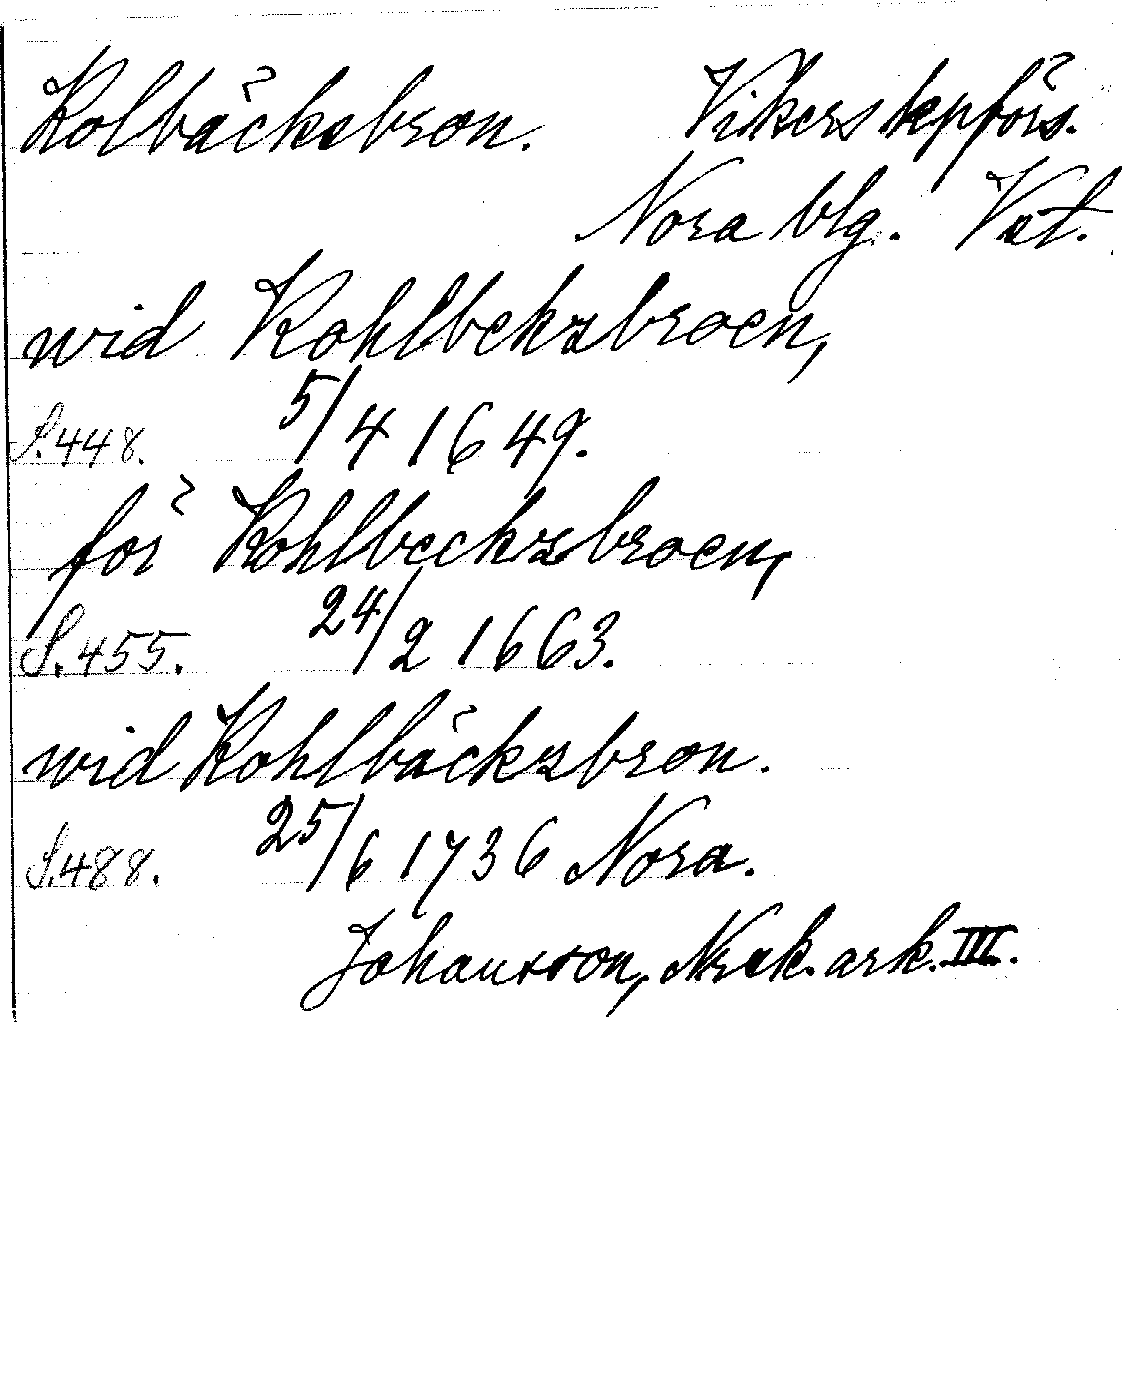 Kolbäcksbron. Vikers kpförs.
Nora blg. Vst.
wid Kohlbekzbroen,
S.448. 5/4 1649.
för Kohlbeckzbroen,
S.455. 24/2 1663.
wid Kohlbäckzbron.
S.488. 25/6 1736 Nora.
Johansson, Nrak. ark. III.